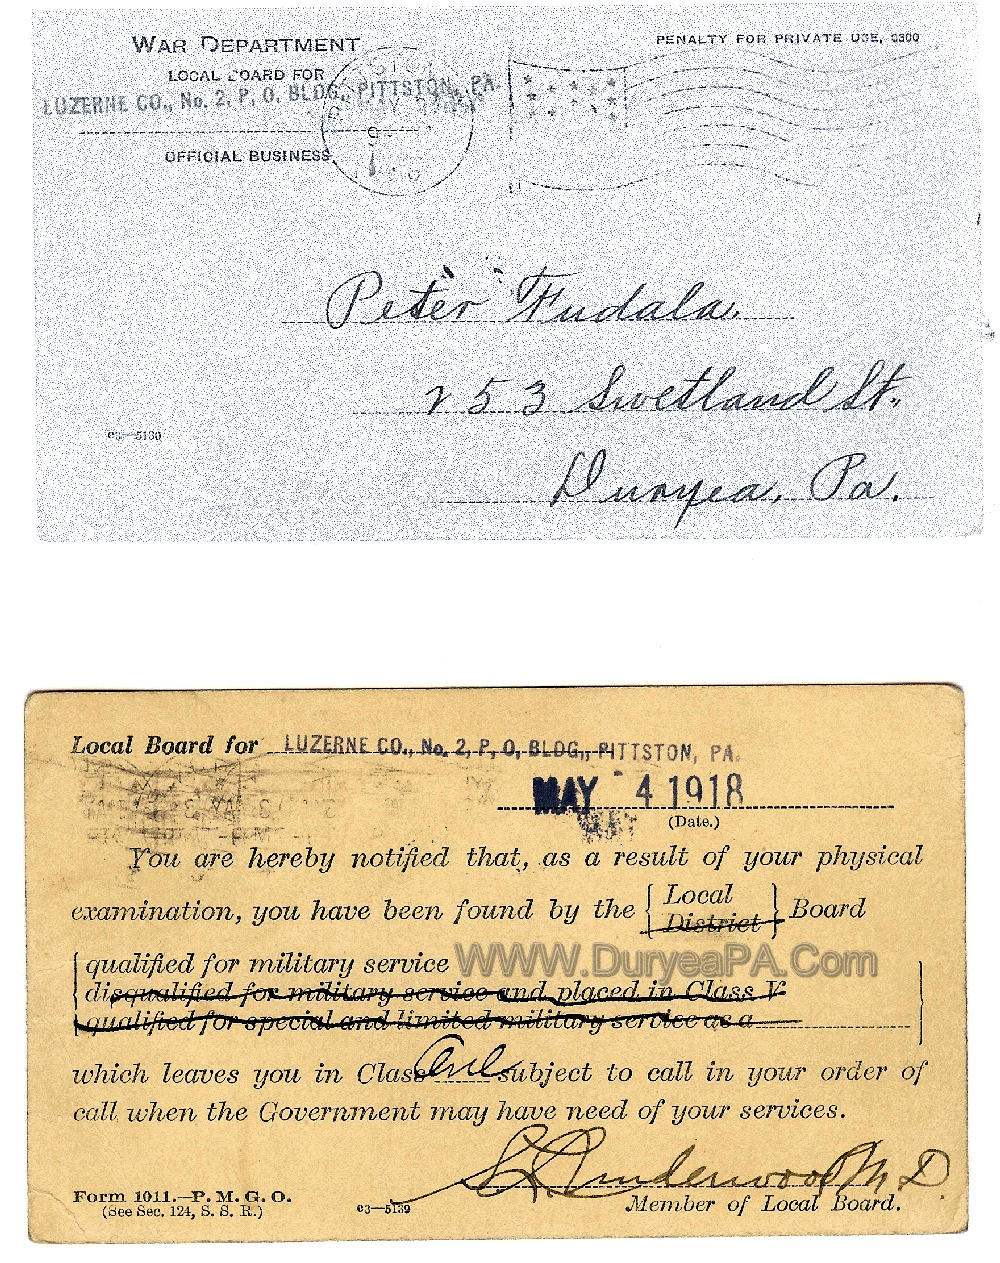 WAR DEPARTMENT
PENALTY FOR PRIVATE USE, $300
LOCAL BOARD FOR
LUZERNE CO., No. 2, P. O. BLDG., PITTSTON, PA.
OFFICIAL BUSINESS
Peter Fudala.
253 Swetland St.
Duryea, Pa.
c3—5130
Local Board for LUZERNE CO., No. 2, P. O. BLDG., PITTSTON, PA.
MAY 4 1918
(Date.)
You are hereby notified that, as a result of your physical
examination, you have been found by the { Local
District } Board
qualified for military service
WWW.DuryeaPA.Com
disqualified for military service and placed in Class V
qualified for special and limited military service as a
which leaves you in Class One subject to call in your order of
call when the Government may have need of your services.
Underwood M D.
Form 1011.—P. M. G. O.
Member of Local Board.
(See Sec. 124, S. S. R.)
c3—5139